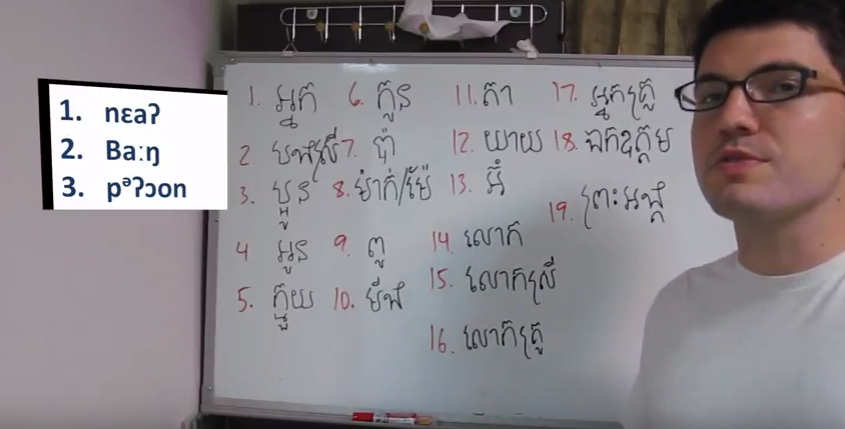 1. nɛaʔ
2. Ba:ŋ
3. pᵊʔɔon
1. អ្នក
2 បងស្រី
3. ប្អូន
4 អូន
5. ក្មួយ
6. កូន
7. ប៉ា
8. ម៉ាក់/ម៉ែ
9. ពូ
10. មីង
11. តា
12. យាយ
13. អ៊ំ
14 លោក
15. លោកស្រី
16. លោកគ្រូ
17. អ្នកគ្រូ
18. ឯកឧត្តម
19. ព្រះអង្គ